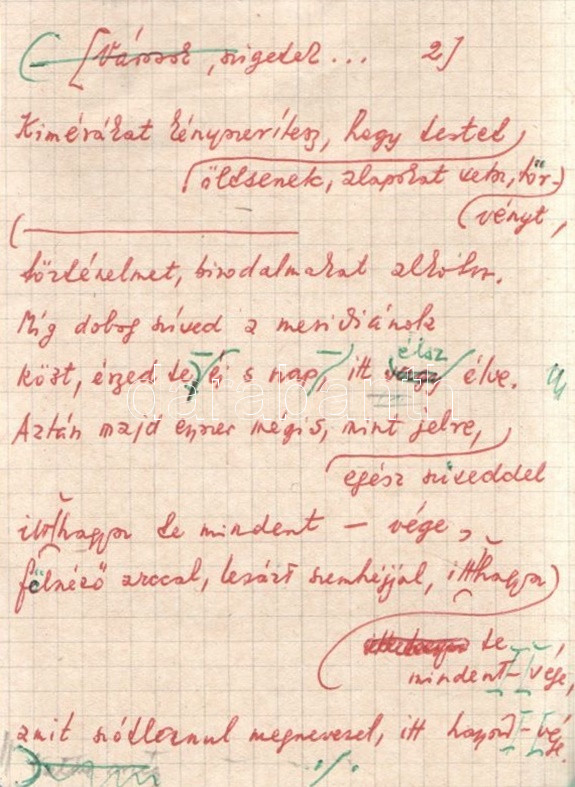 [Városok, szigetek... 2]
Kimérákat kényszerítesz, hogy tested
öltsenek, alapokat vetsz, tör-
vényt,
történelmet, birodalmakat alkotsz.
Míg dobog szíved a meridiánok
közt, érzed te, éj s nap, itt élsz élve.
Aztán majd egyszer mégis, mint jelre,
egész sziveddel
itt hagysz te mindent – vége,
félnéző arccal, lezárt szemhéjjal, itthagysz
te
mindent – vége,
amit szótlanul megnevezel, itt hagyod – vé-
ge.
darabanth.com